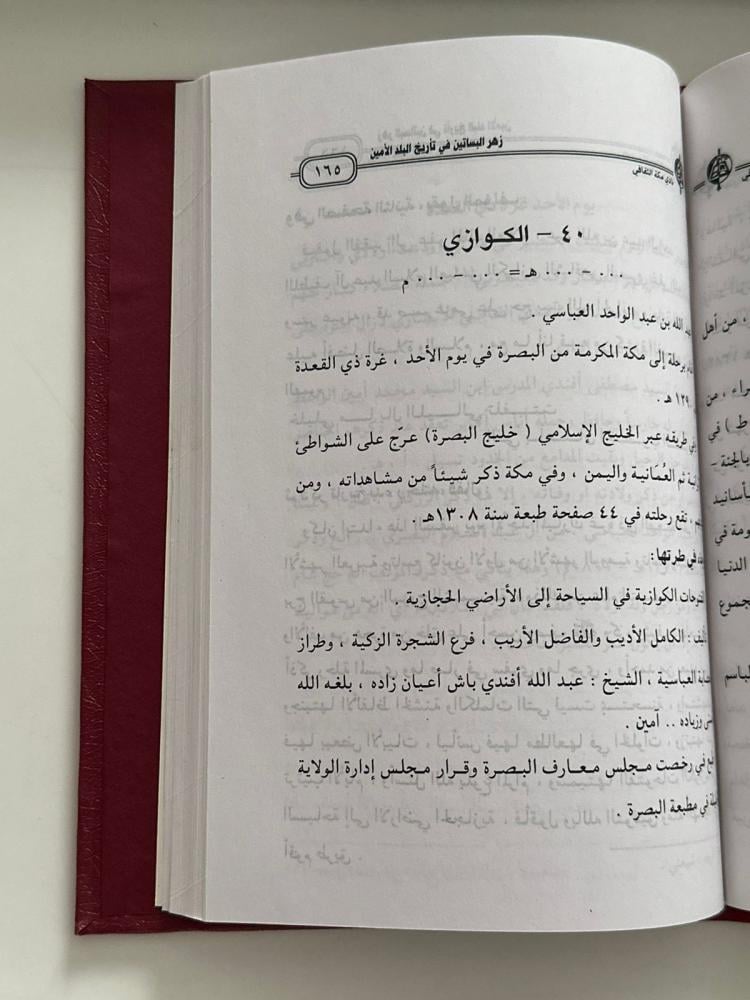 زهر البساتين في تأريخ البلد الأمين
١٦٥
نادي مكة الثقافي
٤٠ - الكوازي
٠٠٠ - ٠٠٠ هـ = ٠٠٠ - ٠٠٠ م
الله بن عبد الواحد العباسي .
برحلة إلى مكة المكرمة من البصرة في يوم الأحد ، غرة ذي القعدة
١٢٩ هـ .
في طريقه عبر الخليج الإسلامي ( خليج البصرة) عرّج على الشواطئ
ثم العُمَانية واليمن ، وفي مكة ذكر شيئاً من مشاهداته ، ومن
، تقع رحلته في ٤٤ صفحة طبعة سنة ١٣٠٨هـ .
في طرتها:
الكوازية في السياحة إلى الأراضي الحجازية .
: الكامل الأديب والفاضل الأريب ، فرع الشجرة الزكية ، وطراز
العباسية ، الشيخ : عبد الله أفندي باش أعيان زاده ، بلغه الله
وزياده .. آمين .
في رخصت مجلس معارف البصرة وقرار مجلس إدارة الولاية
في مطبعة البصرة .
، من أهل
راء ، من
ط ) في
بالجنة -
بأسانيد
ومة في
الدنيا
جموع
لباسم